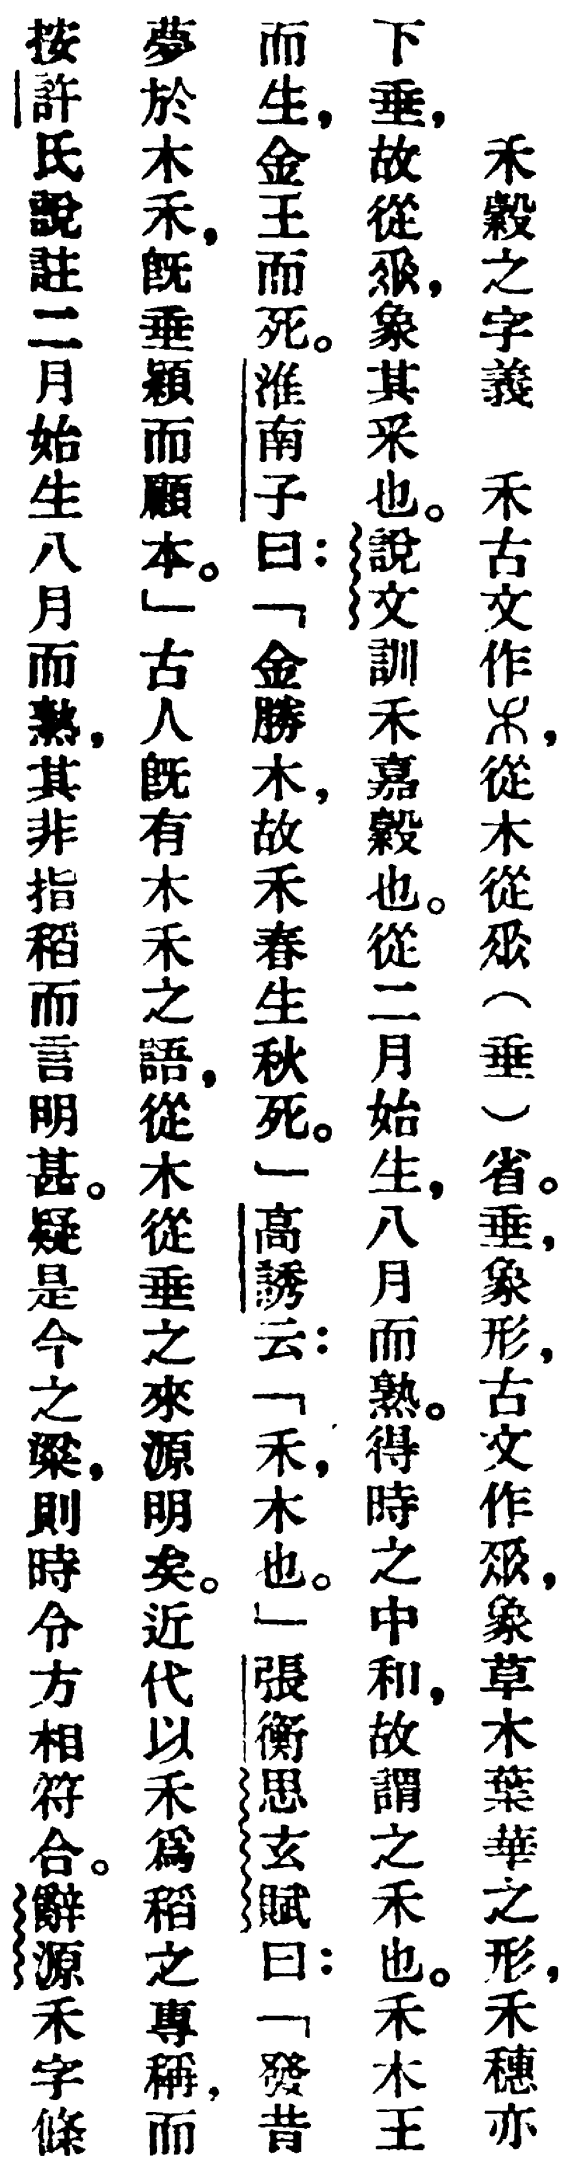 禾穀之字義　禾古文作𥝌，從木從𠂹（垂）省。垂，象形，古文作𠂹，象草木葉華之形，禾穗亦
下垂，故從𠂹，象其采也。說文訓禾嘉穀也。從二月始生，八月而熟。得時之中和，故謂之禾也。禾木王
而生，金王而死。淮南子曰：「金勝木，故禾春生秋死。」高誘云：「禾，木也。」張衡思玄賦曰：「發昔
夢於木禾，旣垂穎而顧本。」古人旣有木禾之語，從木從垂之來源明矣。近代以禾爲稻之專稱，而
按許氏說註二月始生八月而熟，其非指稻而言明甚。疑是今之粱，則時令方相符合。辭源禾字條